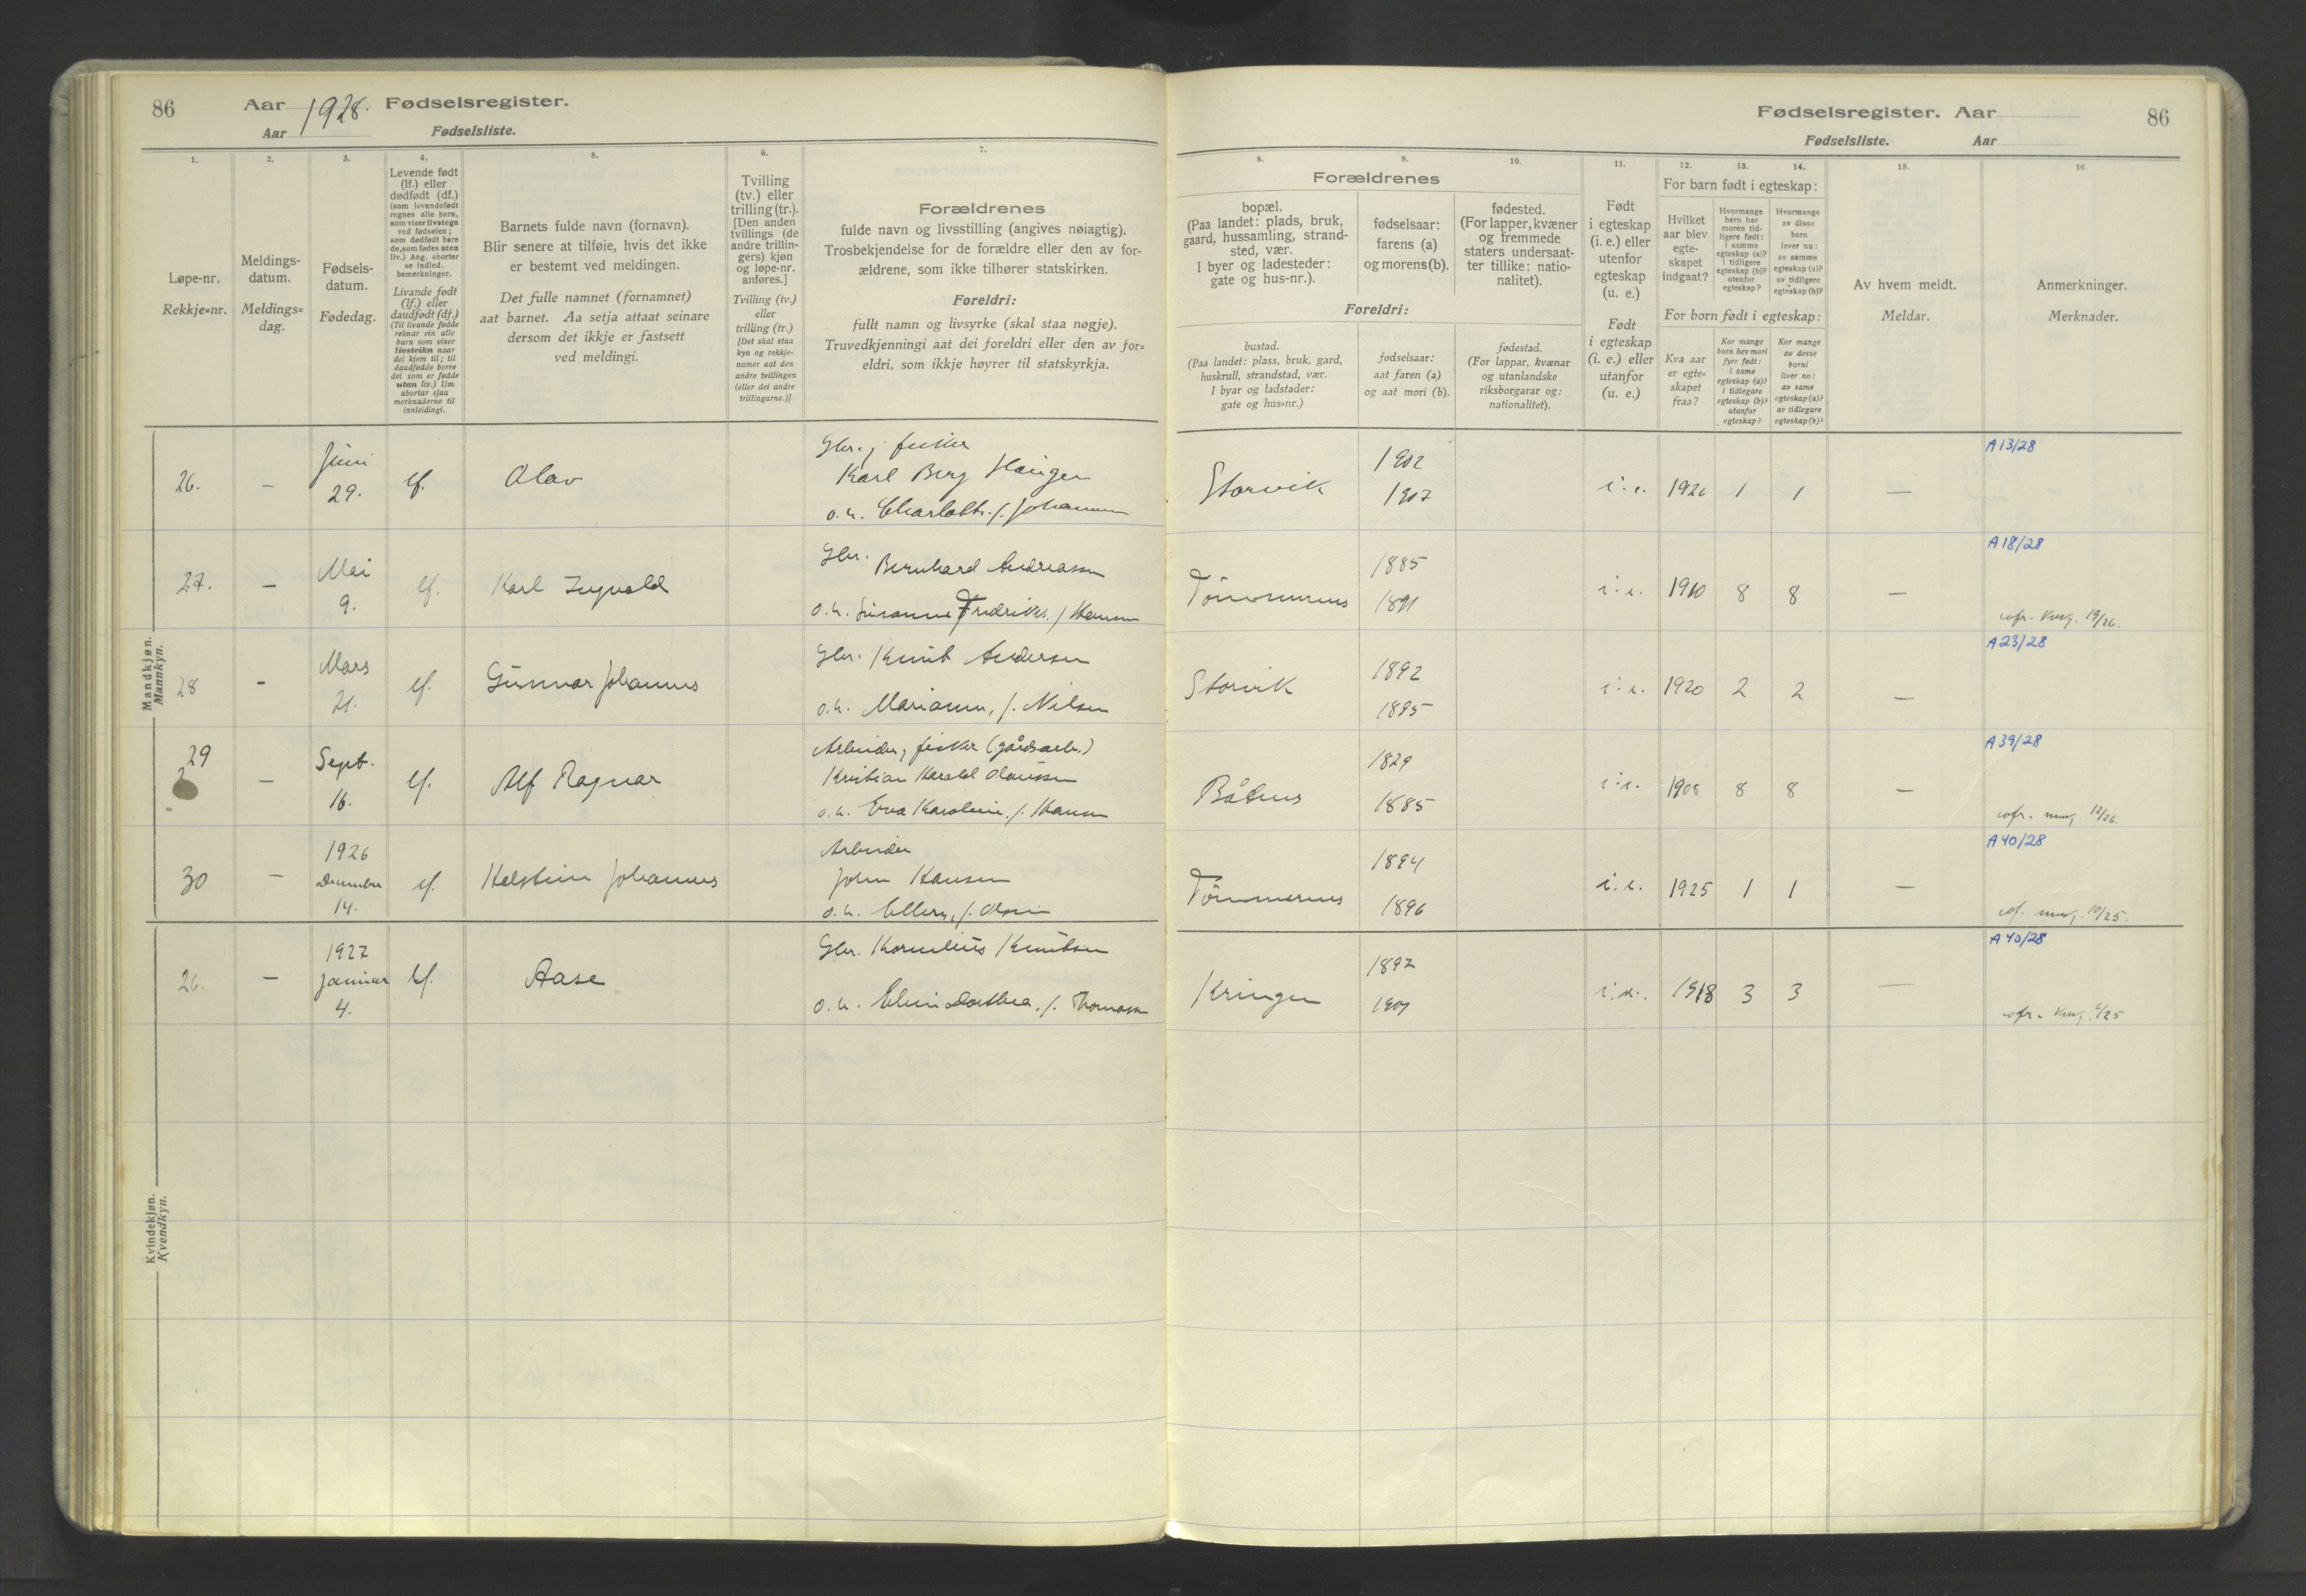 86
Aar 1928. Fødselsregister.
Aar Fødselsliste.
1.
Løpe-nr.
Rekkje=nr.
2.
Meldings-
datum.
Meldings=
dag.
3.
Fødsels-
datum.
Fødedag.
4.
Levende født
(lf.) eller
dødfødt (df.)
(som levendefødt
regnes alle barn,
som viser livstegn
ved fødselen;
som dødfødt bare
de, som fødes uten
liv.) Ang. aborter
se indled.
bemerkninger.
Livande født
(lf.) eller
daudfødt (df.)
(Til livande fødde
reknar ein alle
barn som viser
livsteikn naar
dei kjem til; til
daudfødde berre
dei som er fødde
utan liv.) Um
abortar sjaa
merknaderne til
innleidingi.
5.
Barnets fulde navn (fornavn).
Blir senere at tilføie, hvis det ikke
er bestemt ved meldingen.
Det fulle namnet (fornamnet)
aat barnet. Aa setja attaat seinare
dersom det ikkje er fastsett
ved meldingi.
6.
Tvilling
(tv.) eller
trilling (tr.).
[Den anden
tvillings (de
andre trillin-
gers) kjøn
og løpe-nr.
anføres.]
Tvilling (tv.)
eller
trilling (tr.)
[Det skal staa
kyn og rekkje-
numer aat den
andre tvillingen
(eller dei andre
trillingarne.)]
7.
Forældrenes
fulde navn og livsstilling (angives nøiagtig).
Trosbekjendelse for de forældre eller den av for-
ældrene, som ikke tilhører statskirken.
Foreldri:
fullt namn og livsyrke (skal staa nøgje).
Truvedkjenningi aat dei foreldri eller den av for=
eldri, som ikkje høyrer til statskyrkja.
Fødselsregister. Aar
86
Fødselsliste. Aar
Forældrenes
8.
bopæl.
(Paa landet: plads, bruk,
gaard, hussamling, strand-
sted, vær.
I byer og ladesteder:
gate og hus-nr.).
9.
fødselsaar:
farens (a)
og morens (b).
10.
fødested.
(For lapper, kvæner
og fremmede
staters undersaat-
ter tillike: natio-
nalitet).
Foreldri:
bustad.
(Paa landet: plass, bruk, gard,
huskrull, strandstad, vær.
I byar og ladstader:
gate og hus=nr.)
fødselsaar:
aat faren (a)
og aat mori (b).
fødestad.
(For lappar, kvænar
og utanlandske
riksborgarar og:
nationalitet).
11.
Født
i egteskap
(i. e.) eller
utenfor
egteskap
(u. e.)
Født
i egteskap
(i. e.) eller
utanfor
(u. e.)
For barn født i egteskap:
12.
Hvilket
aar blev
egte-
skapet
indgaat?
13.
Hvormange
barn har
moren tid-
ligere født:
i samme
egteskap (a)?
i tidligere
egteskap (b)?
utenfor
egteskap?
14.
Hvormange
av disse
barn
lever nu:
av samme
egteskap (a)?
av tidligere
egteskap (b)?
For born født i egteskap:
Kva aar
er egte=
skapet
fraa?
Kor mange
born hev mori
fyrr født:
i same
egteskap (a)?
i tidlegare
egteskap (b)?
utanfor
egteskap?
Kor mange
av desse
borni
liver no:
av same
egteskap (a)?
av tidlegare
egteskap (b)?
15.
Av hvem meldt.
Meldar.
16.
Anmerkninger.
Merknader.
Mandkjøn.
Mannkyn.
26. – Juni 29. lf. Olav
Gbr., fisker
Karl Berg Haugen
o. h. Charlotte f. Johansen
Storvik 1902 1907 i. e. 1926 1 1 — A 13/28
27. – Mai 9. lf. Karl Ingvald
Gbr. Bernhard Andreassen
o. h. Susanne Fredrikke f. Hansen
Tömmernes 1885 1891 i. e. 1910 8 8 — A 18/28
19/26.
28 – Mars 21. lf. Gunnar Johannes
Gbr. Knut Andersen
o. h. Marianne, f. Nilsen
Storvik 1892 1895 i. e. 1920 2 2 — A 23/28
29 – Sept. 16. lf. Alf Ragnar
Arbeider, fisker (gårdsarb.)
Kristian Harald Olaussen
o. h. Eva Karoline, f. Hansen
Båtnes 1829 1885 i. e. 1908 8 8 — A 39/28
12/26.
30 – 1926 December 14. lf. Halstein Johannes
Arbeider
John Hansen
o. h. Ellen, f. Olsen
Tömmernes 1894 1896 i. e. 1925 1 1 — A 40/28
10/25.
Kvindekjøn.
Kvendkyn.
26. – 1927 Januar 4. lf. Aase
Gbr. Kornelius Knutsen
o. h. Dorthea, f. Thomassen
Kringen 1897 i. e. 1918 3 3 — A 40/28